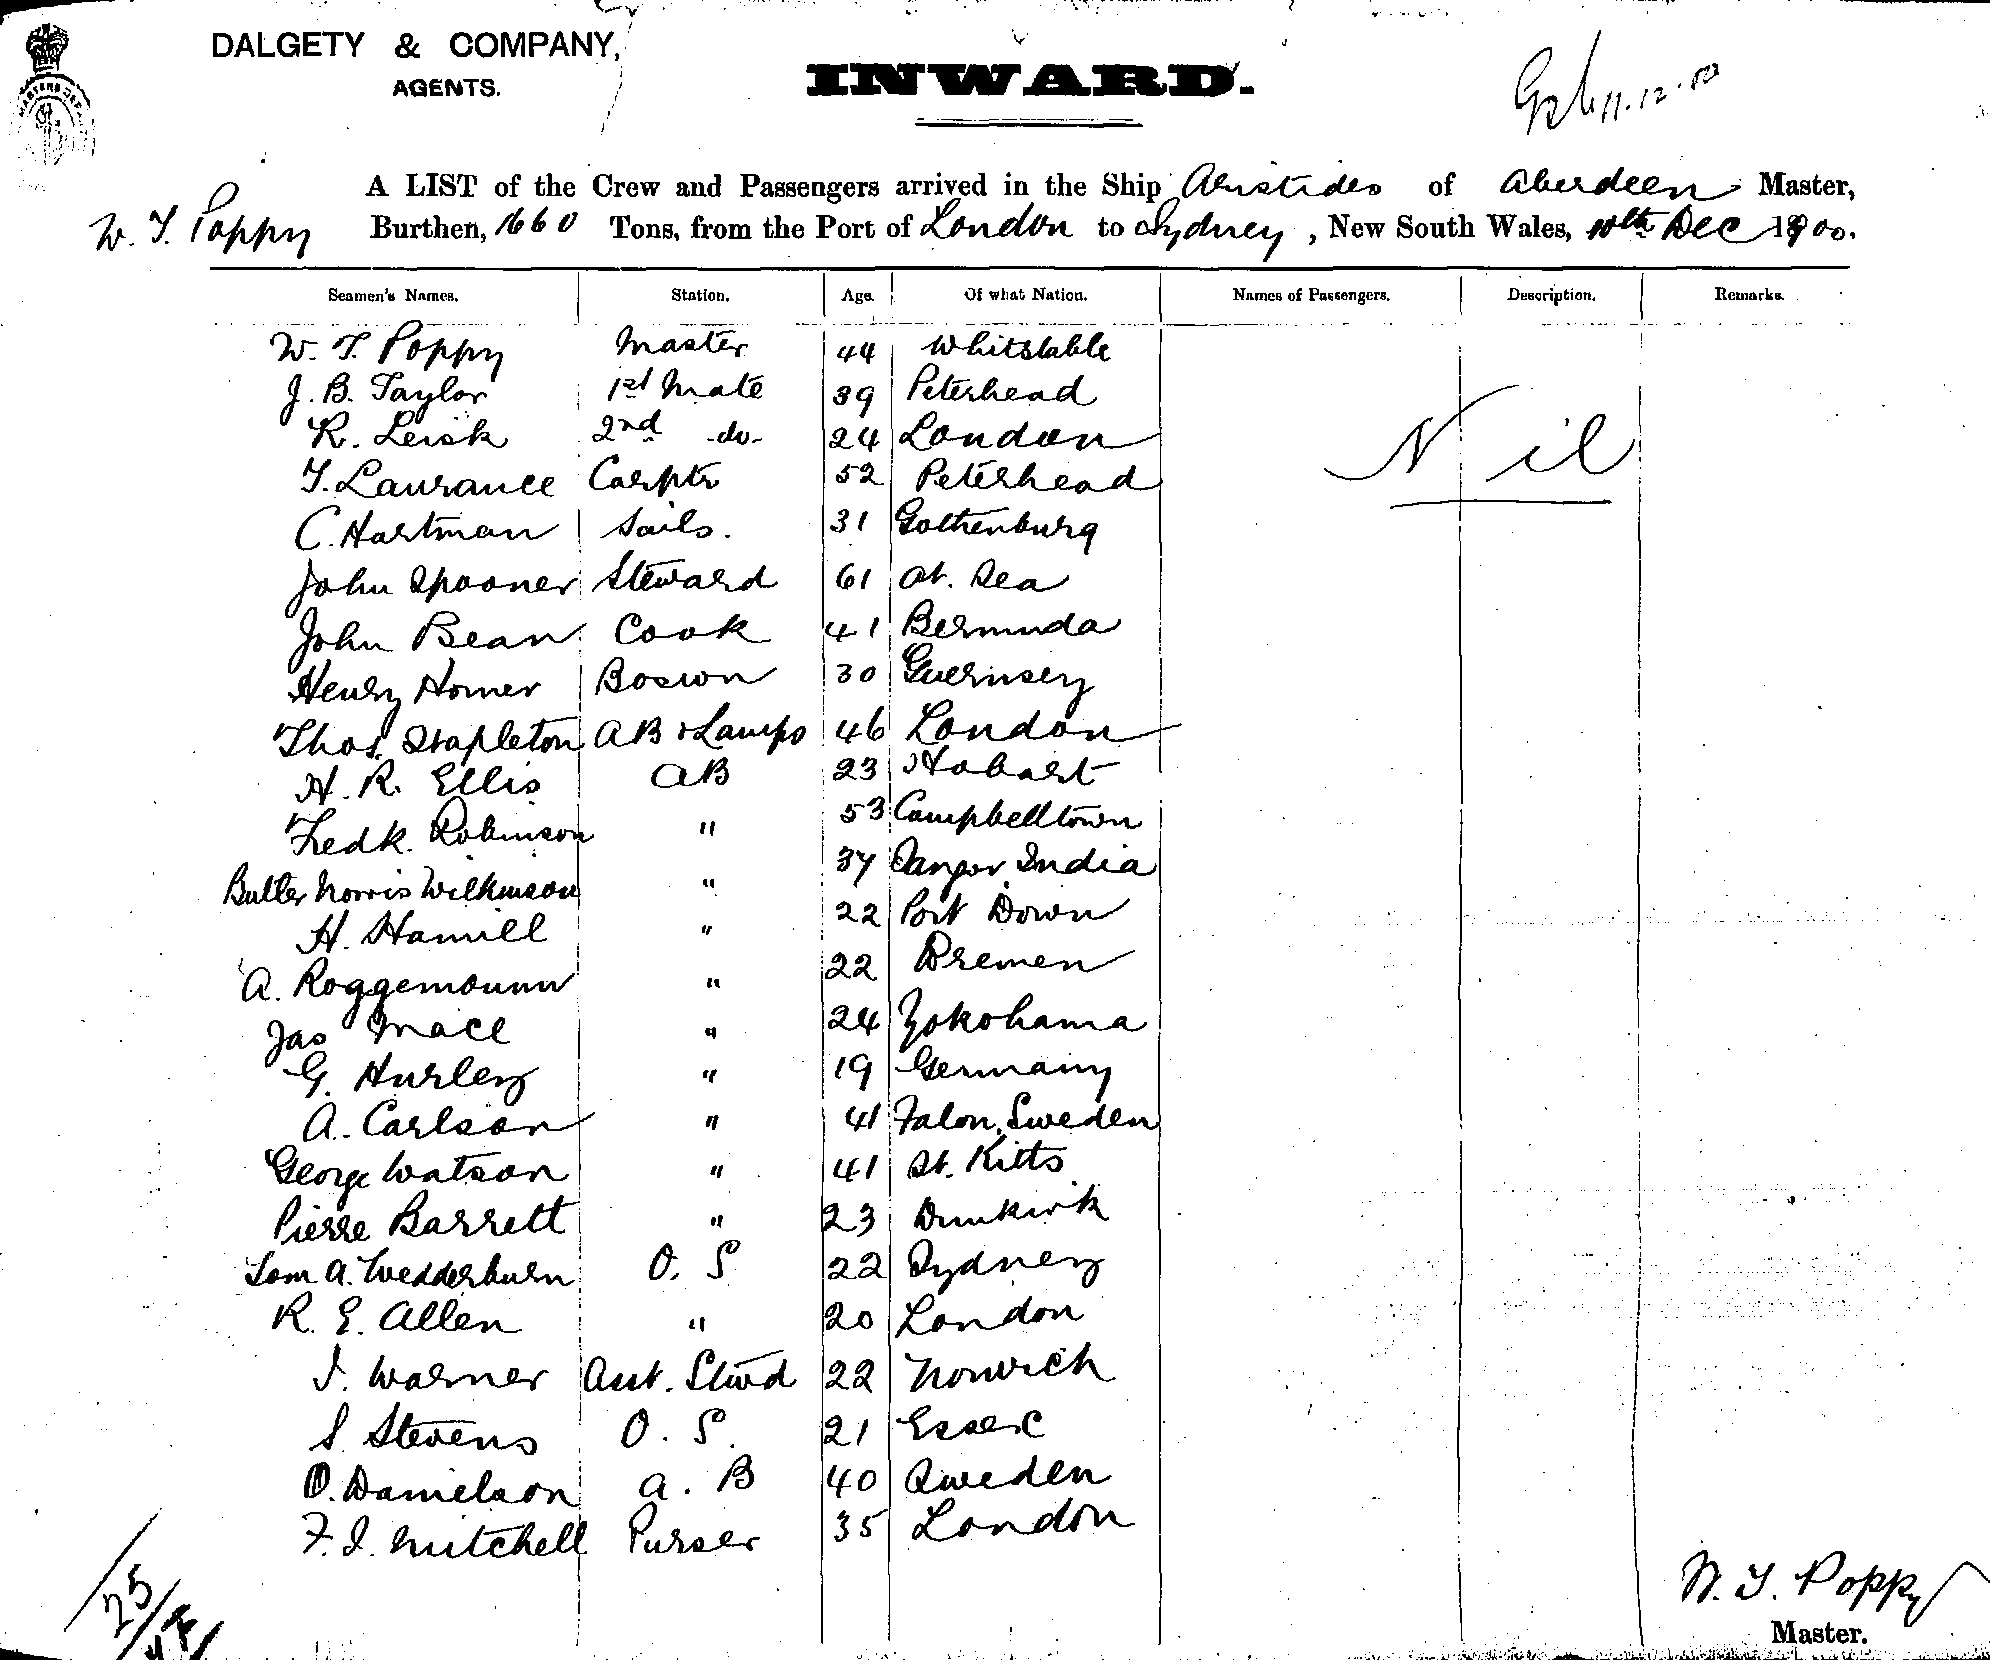 DALGETY & COMPANY,
AGENTS.
INWARD.
11.12.00
A LIST of the Crew and Passengers arrived in the Ship Aristides of Aberdeen Master,
W. T. Poppy Burthen, 1660 Tons, from the Port of London to Sydney, New South Wales, 10th Dec 1900.
Seamen's Names. Station. Age. Of what Nation. Names of Passengers. Description. Remarks.
W. T. Poppy Master 44 Whitstable
J. B. Taylor 1st Mate 39 Peterhead
R. Leisk 2nd -do- 24 London
Nil
T. Laurance Carptr 52 Peterhead
C. Hartman Sails. 31 Gothenburg
John Spooner Steward 61 At. Sea
John Bean Cook 41 Bermuda
Henry Homer Boswn 30 Guernsey
Thos. Stapleton AB & Lamps 46 London
H. R. Ellis AB 23 Hobart
Fredk. Robinson " 53 Campbelltown
Butler Norris Wilkinson " 37 India
H. Hamill " 22 Port Down
A. Roggemounn " 22 Bremen
Jas Mace " 24 Yokohama
G. Hurley " 19 Germany
A. Carlson " 41 Falon, Sweden
George Watson " 41 St. Kitts
Pierre Barrett " 23 Dunkirk
Tom A. Wedderburn O. S 22 Sydney
R. E. Allen " 20 London
J. Warner Asst. Stwd 22 Norwich
S. Stevens O. S. 21 Essex
O. Danielson A. B 40 Sweden
F. J. Mitchell Purser 35 London
25
W. T. Poppy
Master.